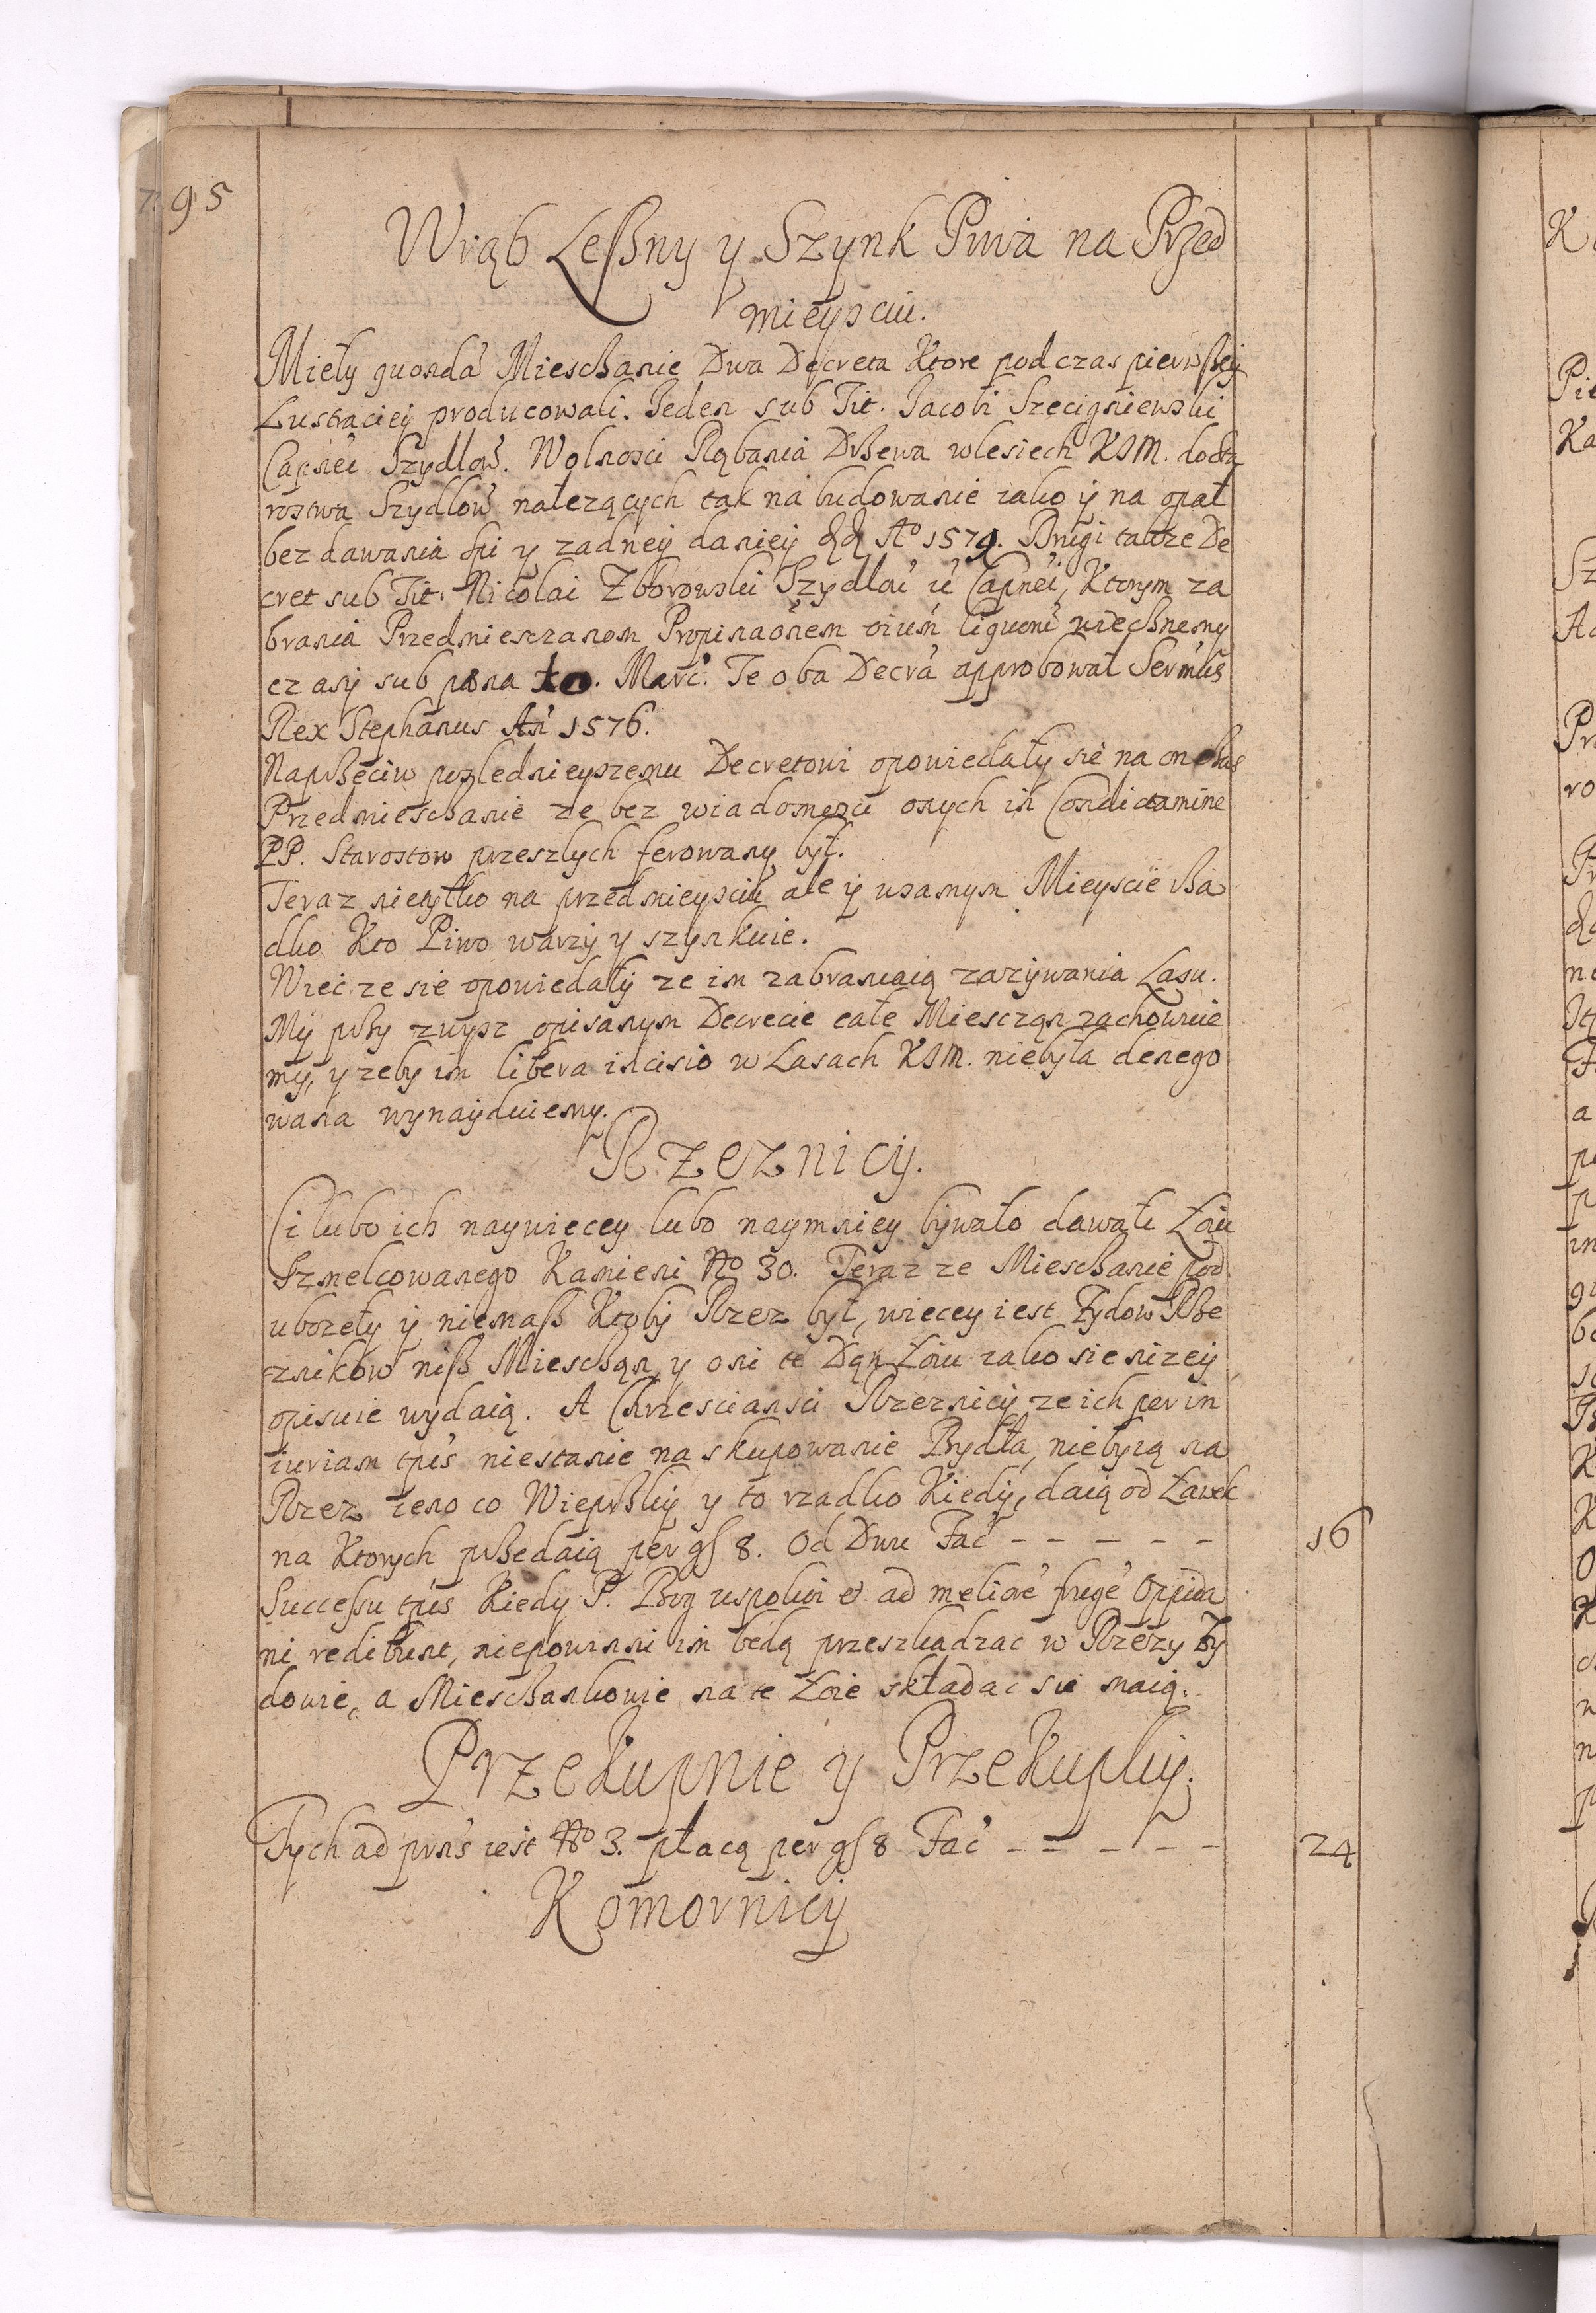 95
Wrąb Leßny y Szynk Piwa na Przed
mieysciu.
Mieły quondā Mieschanie Dwa Decreta Ktore podczas pierwßey
Lustraciey producowali. Jeden sub Tit. Jacobi Szecigniewski
Capnēi Szydlow̄. Wolnosci Rąbania Drzewa wlesiech KJM. do sta
rostwa Szydłow̄ należących tak na budowanie iako ÿ na opał
bez dawania y zadneÿ danieÿ Ao 1579. Drugi takze De
cret sub Tit. Nicolai Zborowski Szydlov̄ Capnēi, Ktorym za
brania Przedmiesczanom Propinaōnem wiecznemy
czasÿ sub pœna Marc̄. Te oba Decrā approbował Serm̄us
Rex Stephanus An̄ 1576.
Naprzeciw poslednieyszemu Decretowi opowiedały sie na
Przedmieschanie ze bez wiadomosci onych in Condictamine
PP. Starostow przeszłych ferowany był.
Teraz nietylko na przedmieysciu ale ÿ wsamym Mieyscie rza
dko Kto Piwo warzÿ y szynkuie.
Wiec ze sie opowiedałÿ ze im zabraniaią zazÿwania Lasu.
Mÿ przy zwysz opisanym Decrecie całe Miesczan zachowuie
mÿ, y zeby im libera incisio w Lasach KJM. niebyła denego
wana wynaÿduiemy.
Rzeznicÿ.
Ci lubo ich naywiecey lubo naymniey bÿwało dawali Łoiu
Szmelcowanego Kamieni No 30. Teraz ze Mieschanie pod
ubozeły ÿ niemaß Ktobÿ Rzez był, wiecey iest Zydow Rze
znikow niß Mieschan, y oni te Dan Łoiu iako sie nizeÿ
opisuie wydaią. A Chrzescianscÿ Rzeznicÿ ze ich per in
iuriam tp̄is niestanie na skupowanie Bydła, niebyią na
Rzez ieno co Wieprzkÿ y to rzadko Kiedÿ, daią od Ławek
na Ktorych przedaią per gß 8. Od Dwu Fac̄ - - - - - 16
Successu tp̄is Kiedy P. Bog uspokoi et ad meliorē frugē Oppida
ni redibunt, niepowinni im będą przeszkadzac w Rzezy Zy
dowie, a Mieschankowie na te Łoie składac sie maią.
Przekupnie y Przekupkÿ.
Tych ad prn̄s iest No 3. płacą per gß 8 Fac̄ - - - - - 24
Komornicÿ